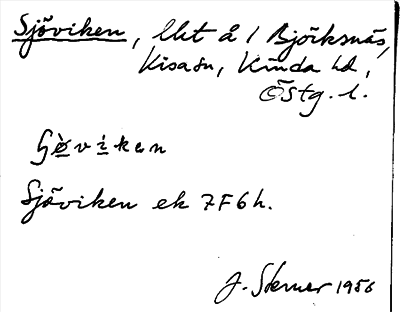 Sjöviken, lht å 1 Björksnäs,
Kisa sn, Kinda hd,
Östg. l.
Sjöviken ek 7F6h.
J. Sterner 1956